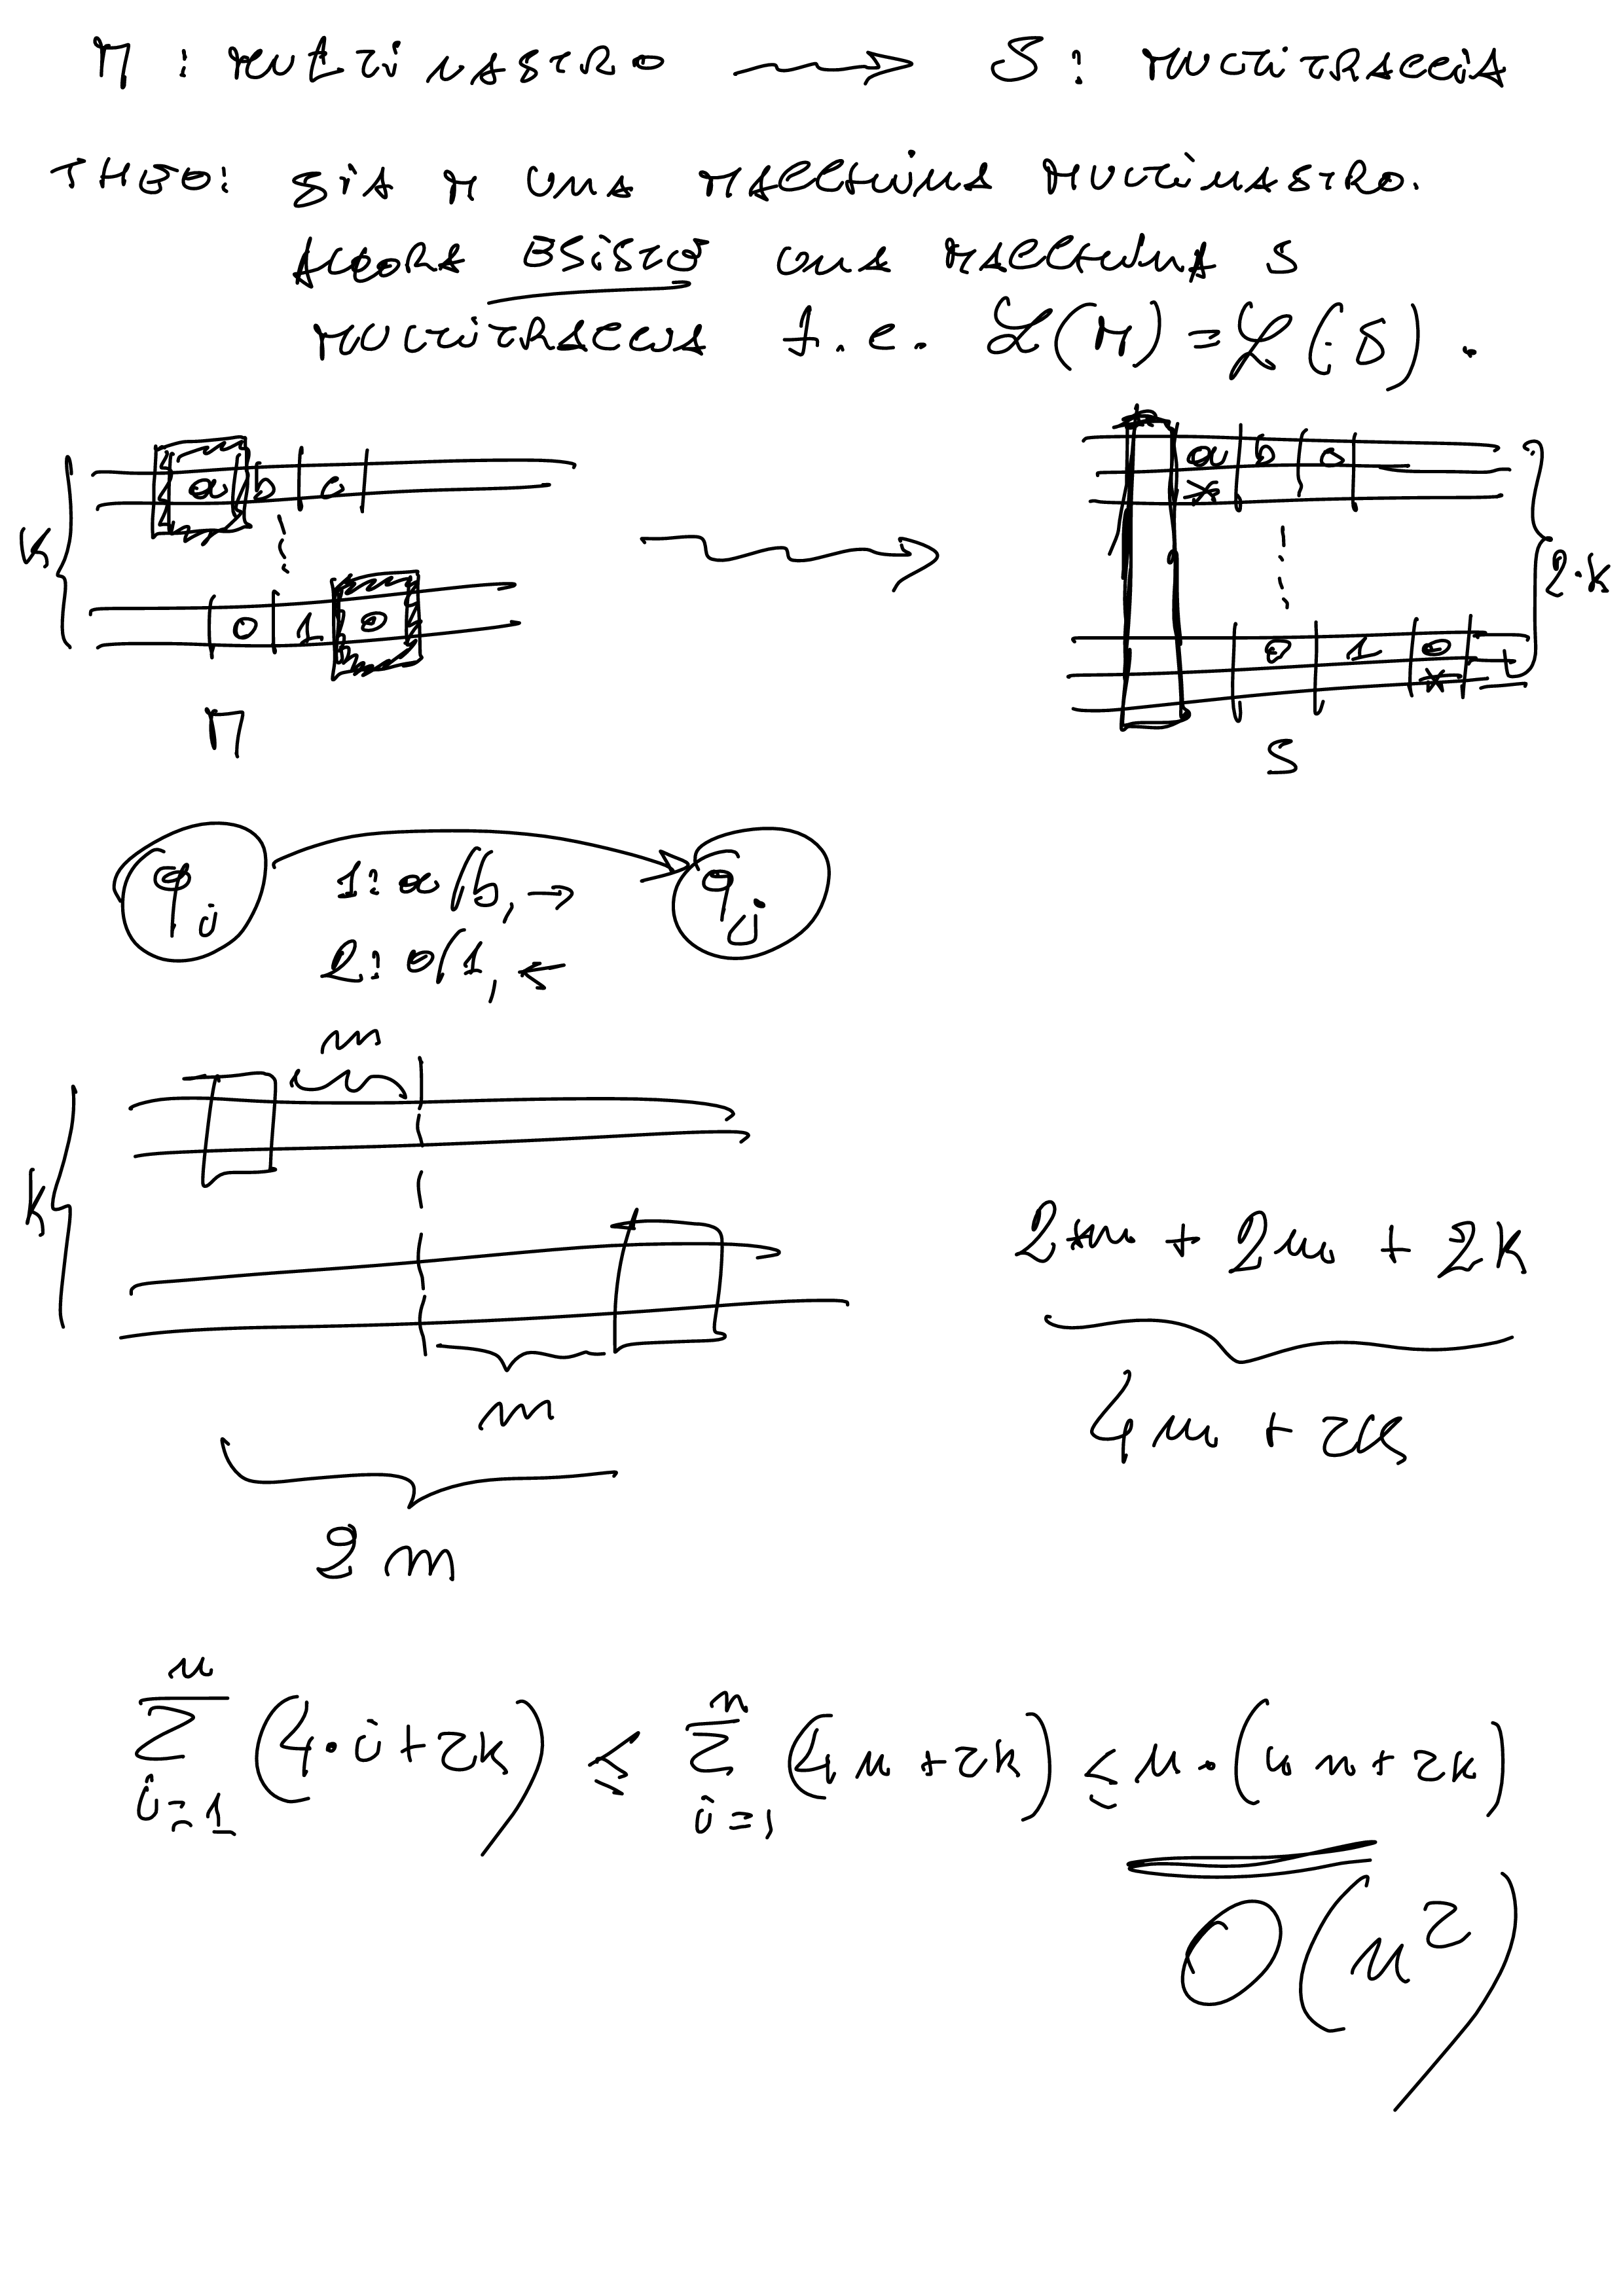 M : MULTINASTRO → S : MULTITRACCIA
THEO: SIA M UNA MACCHINA MULTINASTRO.
ALLORA ESISTE UNA MACCHINA S
MULTITRACCIA t.c. L(M) = L(S).
K a b c
a b c
*
⋮
⋮
2·K
0 1 0
0 1 0
*
M
S
qi 1: a/b, → qj
2: 0/1, ←
m
K
2m + 2m + 2K
m
4m + 2K
2m
n
∑ (4·i+2K) ≤ ∑ (4n+2K) ≤ n·(4n+2K)
i=1
n
i=1
O(n²)